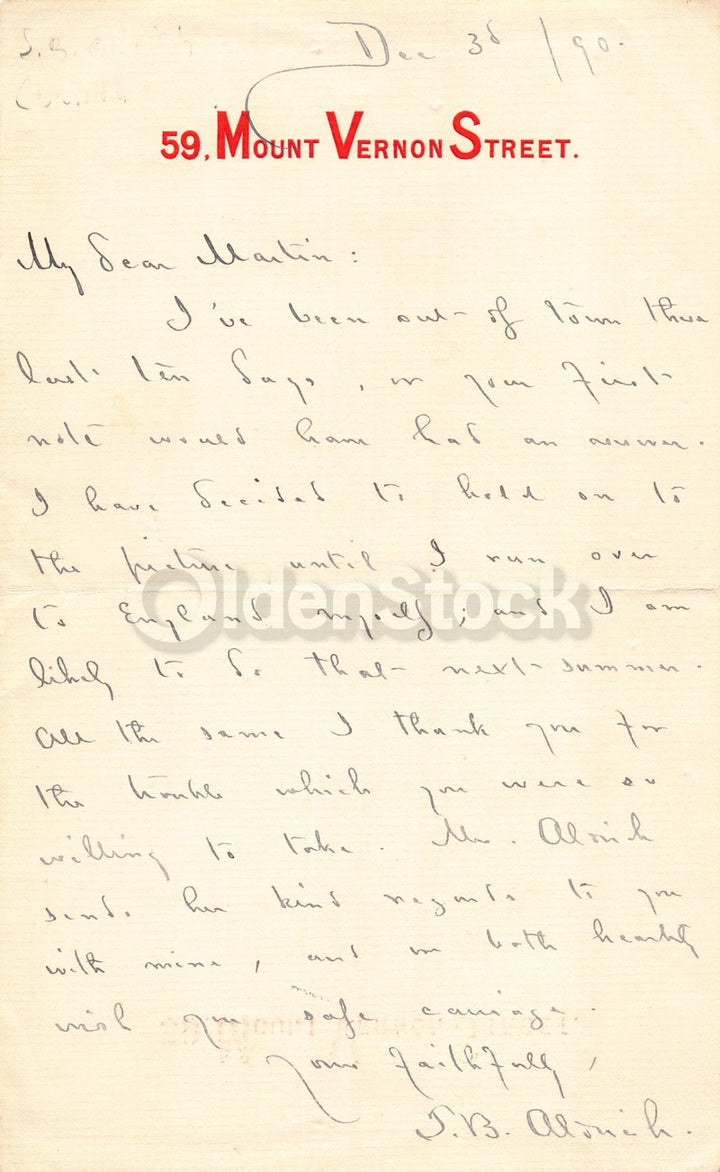 Dec 3d /90.
59, MOUNT VERNON STREET.
My dear Martin:
I've been out of town these
last ten days, or your first
note would have had an answer.
I have decided to hold on to
the picture until I run over
to England myself; and I am
OldenStock
likely to do that next summer.
All the same I thank you for
the trouble which you were so
willing to take. Mrs. Aldrich
sends her kind regards to you
with mine, and we both heartily
wish you safe carriage.
Yours faithfully,
T.B. Aldrich.